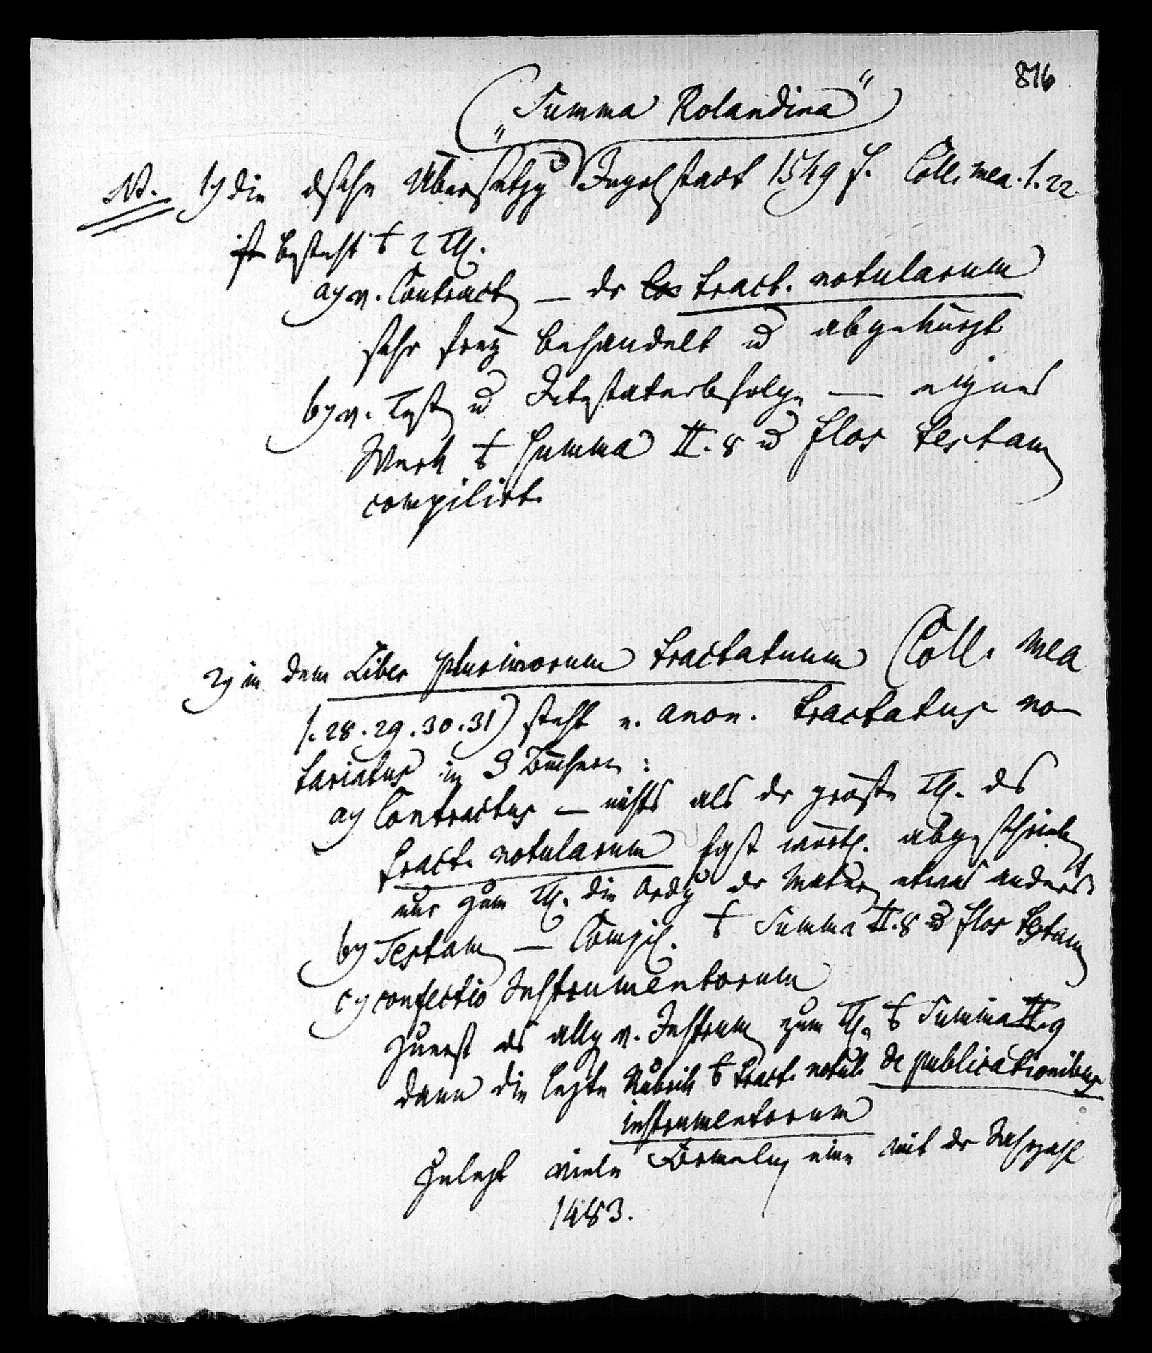 816
„Summa Rolandina“
NB. 1) die dtsche Übersetzg Ingolstadt 1549 f. Coll. mea. 1. 22
besteht 2 Th.
a) v. Contract — dr tract. notularum
sehr frey behandelt u abgekürzt
b) v. Test u Intestaterbfolge — eignes
Werk Summa II. 8 u flos testam
compilirt.
2) in dem Liber plurimorum tractatuum (Coll. mea
1. 28. 29. 30. 31) steht e. anon. tractatus no
tariatus in 3 Büchern:
a) Contractus — nichts als dr große Th. des
tract. notularum fast wörtl. abgeschrieb
nur zum Th. die Ordg dr Mater etwas anders
b) Testam — Compil. Summa II. 8 u flos testam
c) confectio Instrumentorum
zuerst allg v. Instrum zum Th. Summa II. 9
dann die lezte Rubrik tract. notul. de publicationibus
instrumentorum
Zulezt viele Formeln, eine mit dr Jahrzahl
1483.